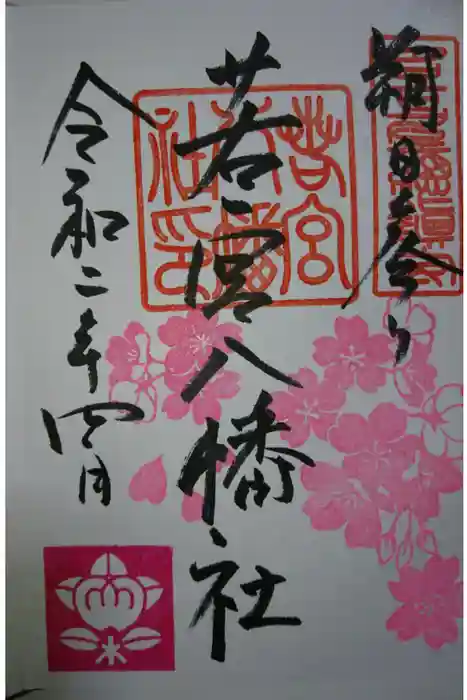 朔日参り
若宮八幡社
令和二年四月
若宮八幡社印